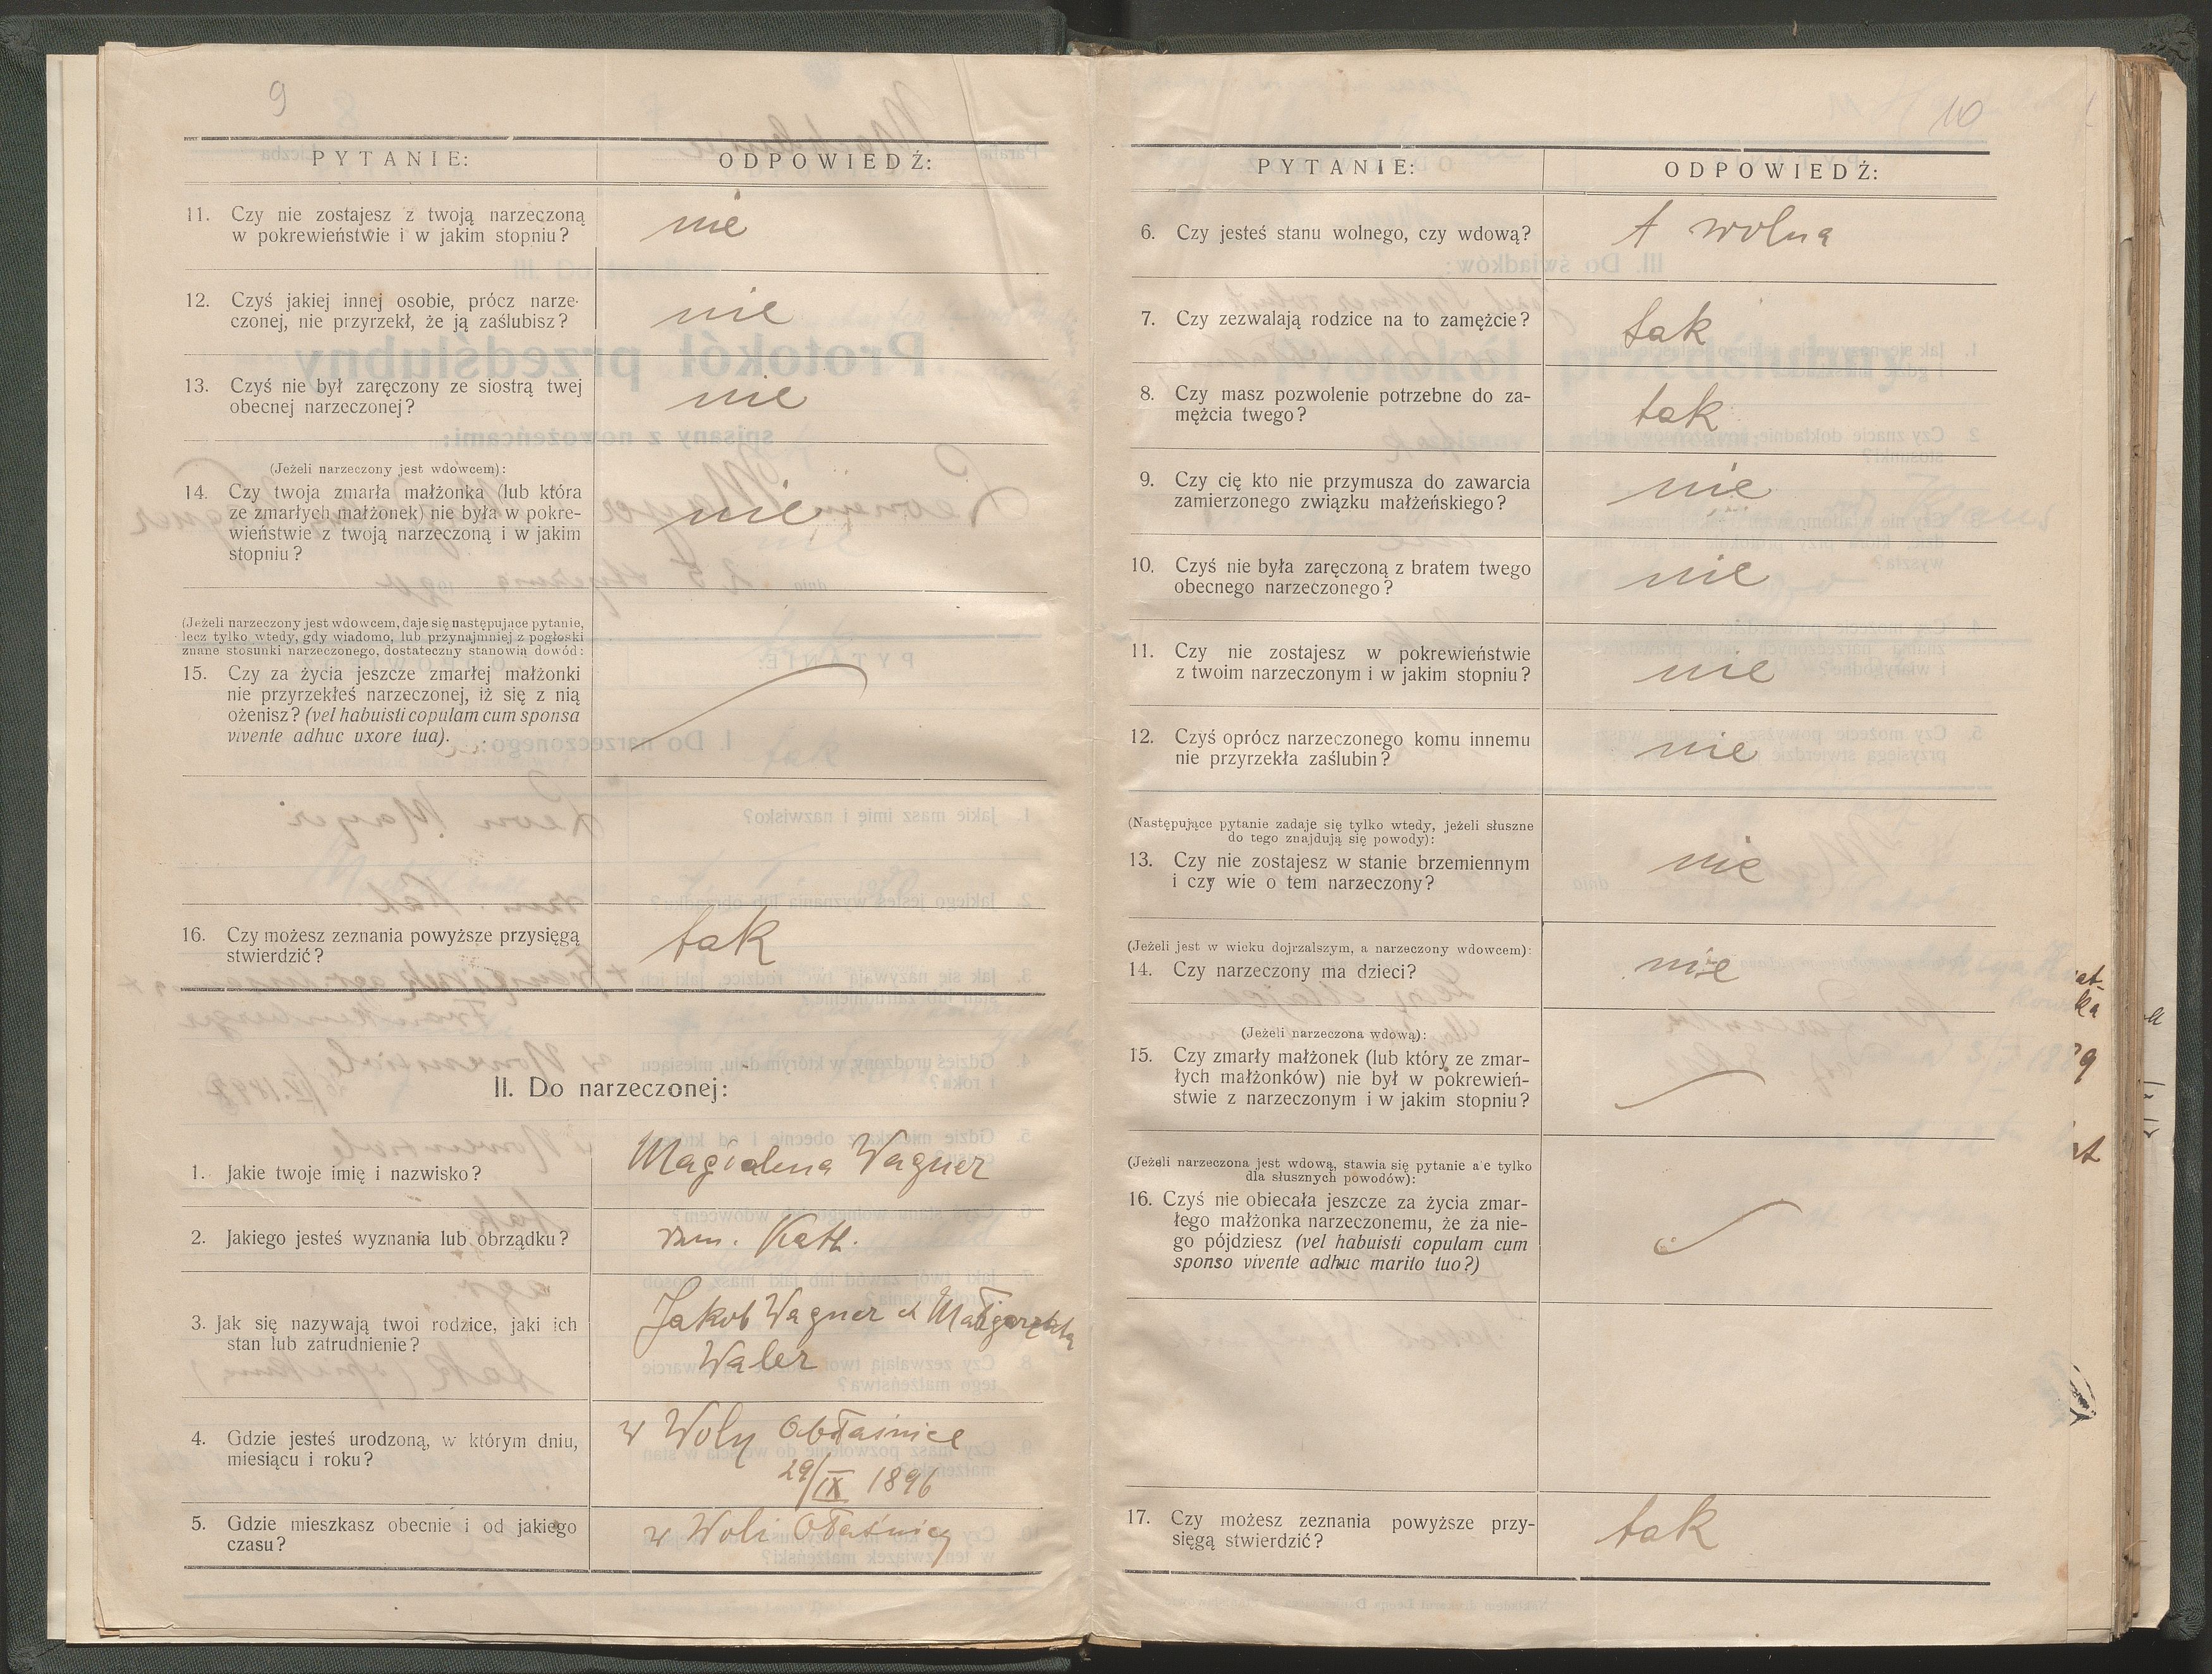 9
PYTANIE:
ODPOWIEDŹ:
11. Czy nie zostajesz z twoją narzeczoną
w pokrewieństwie i w jakim stopniu?
nie
12. Czyś jakiej innej osobie, prócz narze-
czonej, nie przyrzekł, że ją zaślubisz?
nie
13. Czyś nie był zaręczony ze siostrą twej
obecnej narzeczonej?
nie
(Jeżeli narzeczony jest wdowcem):
14. Czy twoja zmarła małżonka (lub która
ze zmarłych małżonek) nie była w pokre-
wieństwie z twoją narzeczoną i w jakim
stopniu?
nie
(Jeżeli narzeczony jest wdowcem, daje się następujące pytanie,
lecz tylko wtedy, gdy wiadomo, lub przynajmniej z pogłoski
znane stosunki narzeczonego, dostateczny stanowią dowód:
15. Czy za życia jeszcze zmarłej małżonki
nie przyrzekłeś narzeczonej, iż się z nią
ożenisz? (vel habuisti copulam cum sponsa
vivente adhuc uxore tua).
16. Czy możesz zeznania powyższe przysięgą
stwierdzić?
tak
II. Do narzeczonej:
1. Jakie twoje imię i nazwisko?
Magdalena Wagner
2. Jakiego jesteś wyznania lub obrządku?
rzm. Kath.
3. Jak się nazywają twoi rodzice, jaki ich
stan lub zatrudnienie?
Jakob Wagner et Małgorzata
Waler
4. Gdzie jesteś urodzoną, w którym dniu,
miesiącu i roku?
w Woly Obłaśnice
29/IX 1896
5. Gdzie mieszkasz obecnie i od jakiego
czasu?
w Woli Ołaśnicy
10
PYTANIE:
ODPOWIEDŹ:
6. Czy jesteś stanu wolnego, czy wdową?
wolna
7. Czy zezwalają rodzice na to zamężcie?
tak
8. Czy masz pozwolenie potrzebne do za-
mężcia twego?
tak
9. Czy cię kto nie przymusza do zawarcia
zamierzonego związku małżeńskiego?
nie
10. Czyś nie była zaręczoną z bratem twego
obecnego narzeczonego?
nie
11. Czy nie zostajesz w pokrewieństwie
z twoim narzeczonym i w jakim stopniu?
nie
12. Czyś oprócz narzeczonego komu innemu
nie przyrzekła zaślubin?
nie
(Następujące pytanie zadaje się tylko wtedy, jeżeli słuszne
do tego znajdują się powody):
13. Czy nie zostajesz w stanie brzemiennym
i czy wie o tem narzeczony?
nie
(Jeżeli jest w wieku dojrzalszym, a narzeczony wdowcem):
14. Czy narzeczony ma dzieci?
nie
(Jeżeli narzeczona wdową):
15. Czy zmarły małżonek (lub który ze zmar-
łych małżonków) nie był w pokrewień-
stwie z narzeczonym i w jakim stopniu?
(Jeżeli narzeczona jest wdową, stawia się pytanie a'e tylko
dla słusznych powodów):
16. Czyś nie obiecała jeszcze za życia zmar-
łego małżonka narzeczonemu, że za nie-
go pójdziesz (vel habuisti copulam cum
sponso vivente adhuc marito tuo?)
17. Czy możesz zeznania powyższe przy-
sięgą stwierdzić?
tak